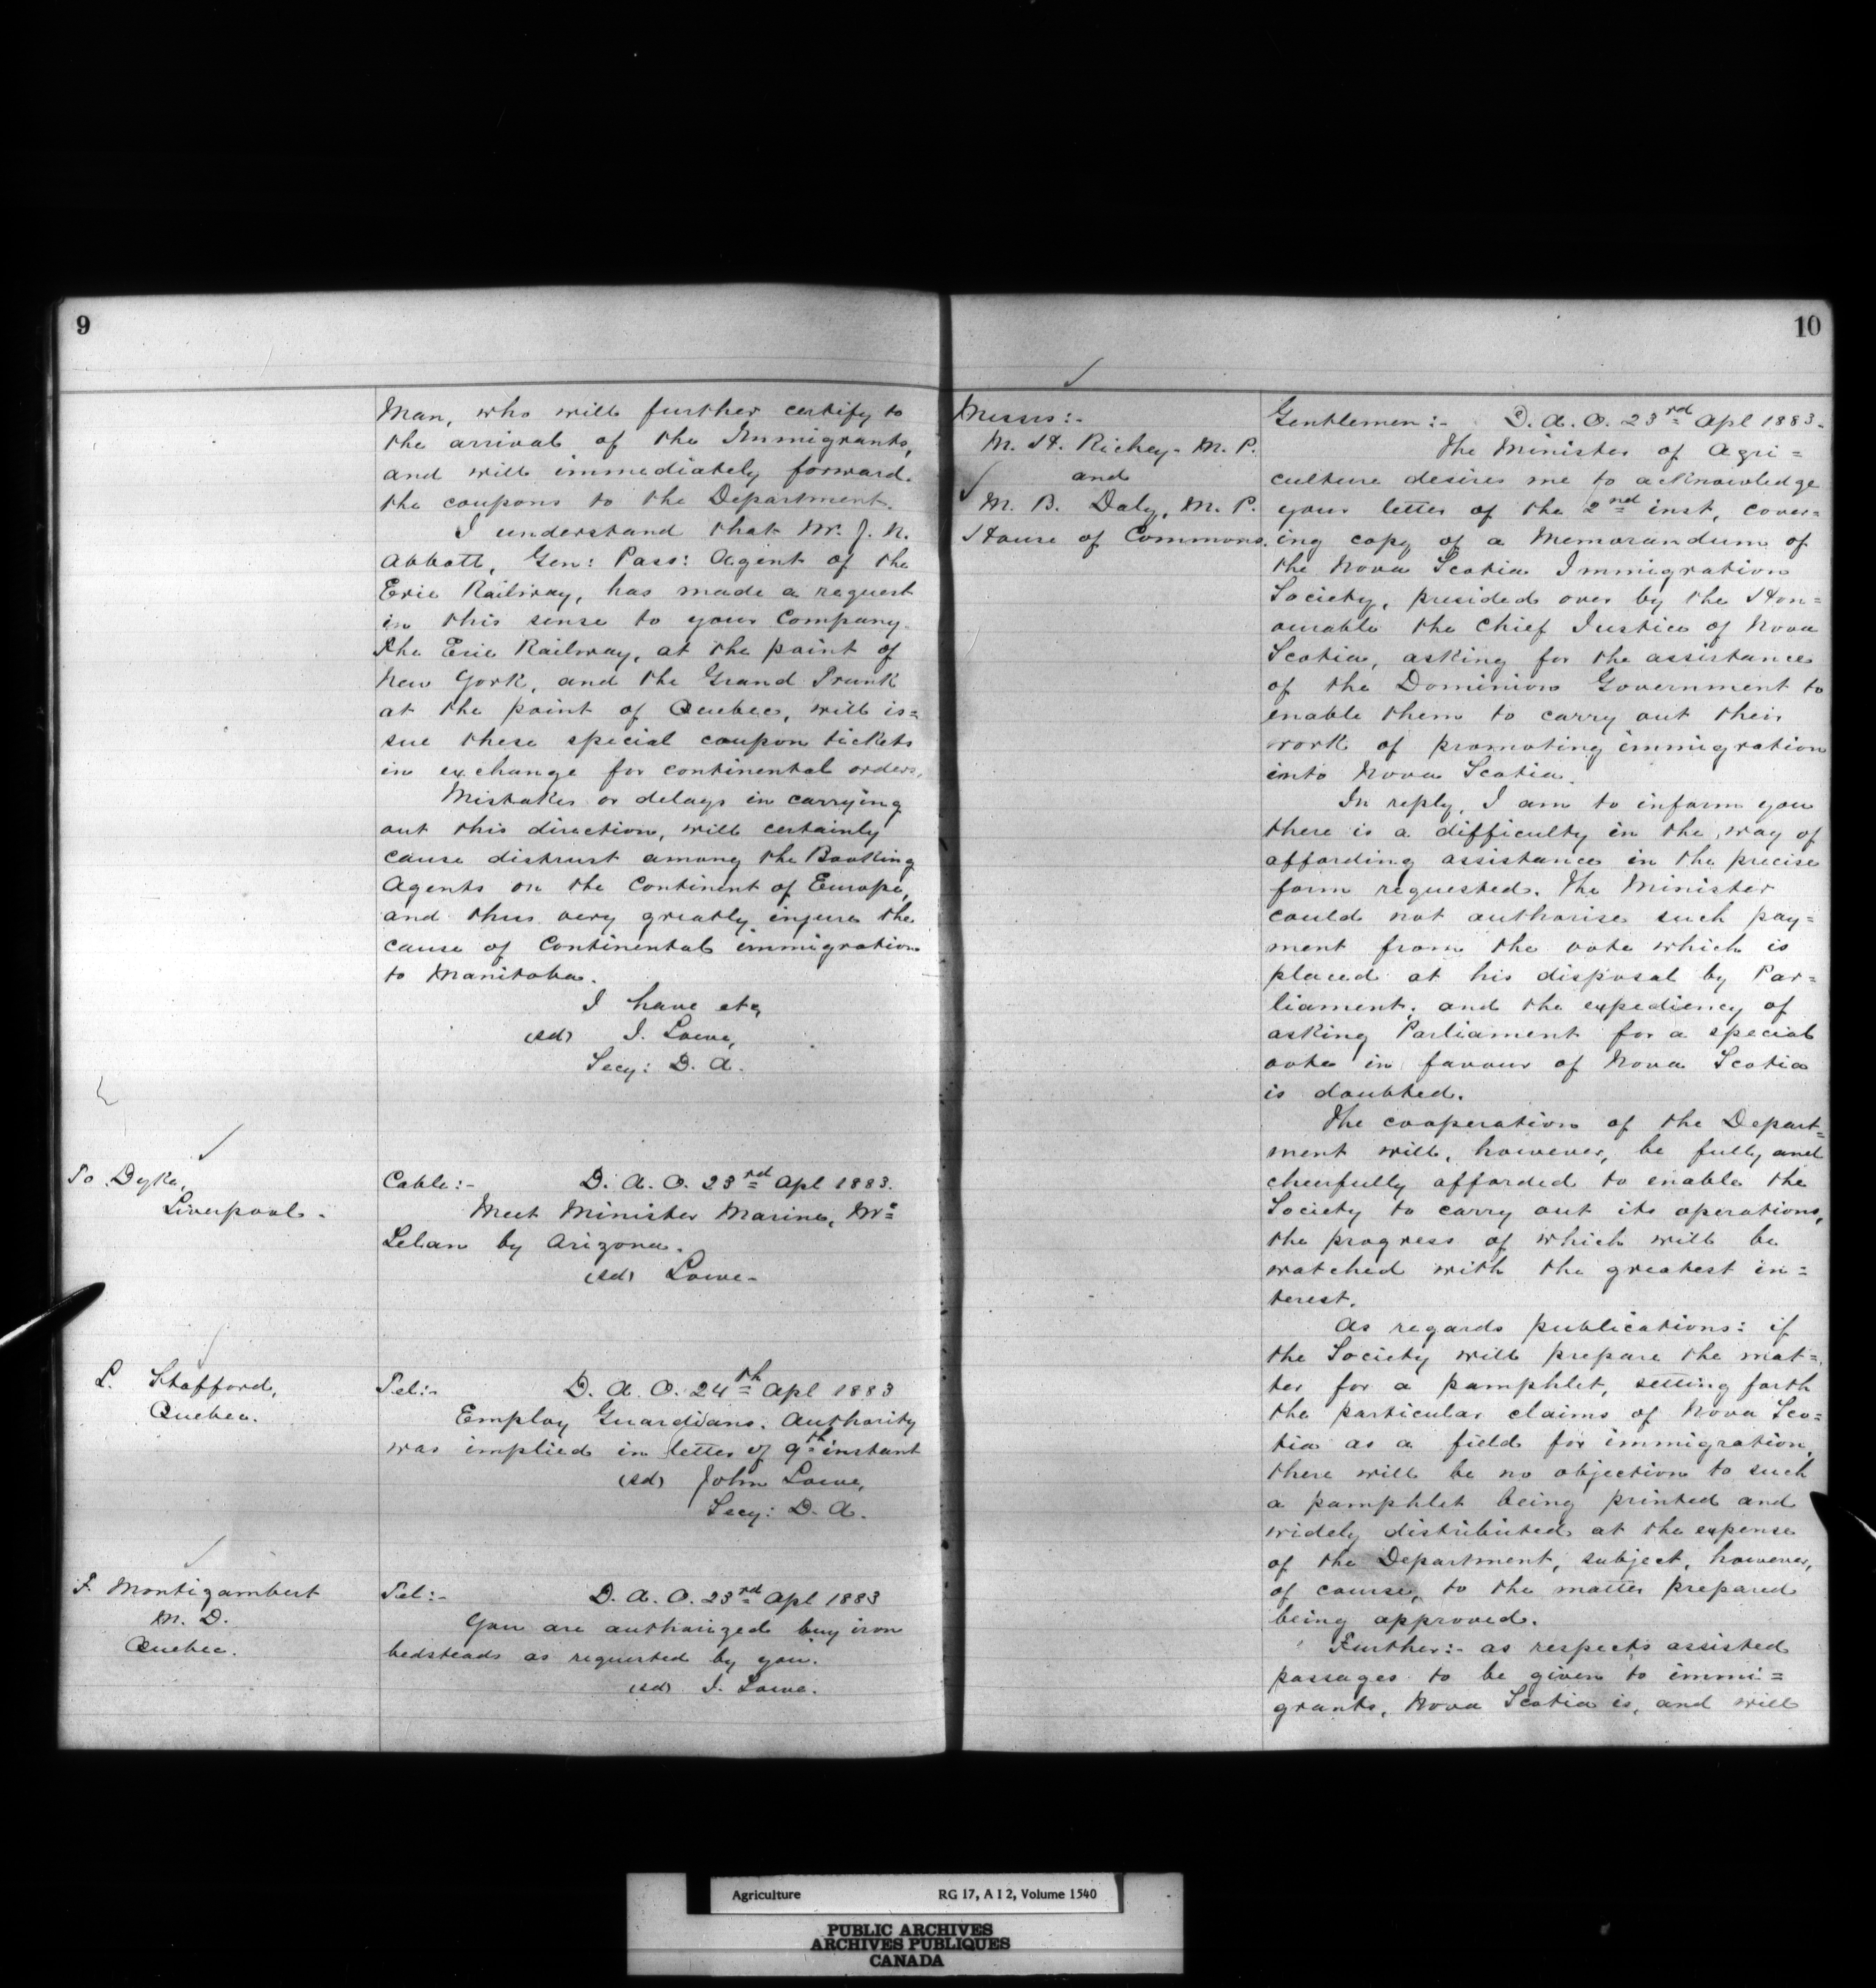 9
Man, who will further certify to
the arrival of the Immigrants,
and will immediately forward
the coupons to the Department.
I understand that Mr. J. N.
Abbott, Gen: Pass: Agent of the
Erie Railway, has made a request
in this sense to your Company.
The Erie Railway, at the point of
New York, and the Grand Trunk
at the point of Quebec, will is=
sue these special coupon tickets
in exchange for continental orders.
Mistakes or delays in carrying
out this direction, will certainly
cause distrust among the Booking
Agents on the Continent of Europe,
and thus very greatly injure the
cause of Continental immigration
to Manitoba.
I have etc,
(sd) J. Lowe,
Secy: D. A.
To Dyke,
Liverpool.
Cable:- D. A. O. 23rd Apl 1883.
Meet Minister Marine, Mc
Lelan by Arizona.
(sd) Lowe-
L. Stafford,
Quebec.
Tel:- D. A. O. 24th Apl 1883
Employ Guardians. Authority
was implied in letter of 9th instant
(sd) John Lowe,
Secy: D. A.
F. Montizambert
M. D.
Quebec.
Tel:- D. A. O. 23rd Apl 1883
You are authorized buy iron
bedsteads as requested by you.
(sd) J. Lowe.
10
Messrs:-
M. H. Richey- M. P.
and
M. B. Daly, M. P.
House of Commons.
Gentlemen:- D. A. O. 23rd Apl 1883.
The Minister of Agri=
culture desires me to acknowledge
your letter of the 2nd inst, cover=
ing copy of a Memorandum of
the Nova Scotia Immigration
Society, presided over by the Hon=
ourable the Chief Justice of Nova
Scotia, asking for the assistance
of the Dominion Government to
enable them to carry out their
work of promoting immigration
into Nova Scotia.
In reply, I am to inform you
there is a difficulty in the way of
affording assistance in the precise
form requested. The Minister
could not authorise such pay=
ment from the vote which is
placed at his disposal by Par=
liament; and the expediency of
asking Parliament for a special
vote in favour of Nova Scotia
is doubted.
The cooperation of the Depart=
ment will, however, be fully and
cheerfully afforded to enable the
Society to carry out its operations,
the progress of which will be
watched with the greatest in=
terest.
As regards publications: if
the Society will prepare the mat=
ter for a pamphlet, setting forth
the particular claims of Nova Sco=
tia as a field for immigration,
there will be no objection to such
a pamphlet being printed and
widely distributed at the expense
of the Department, subject, however,
of course, to the matter prepared
being approved.
Further:- as respects assisted
passages to be given to immi=
grants, Nova Scotia is, and will
Agriculture RG 17, A I 2, Volume 1540
PUBLIC ARCHIVES
ARCHIVES PUBLIQUES
CANADA